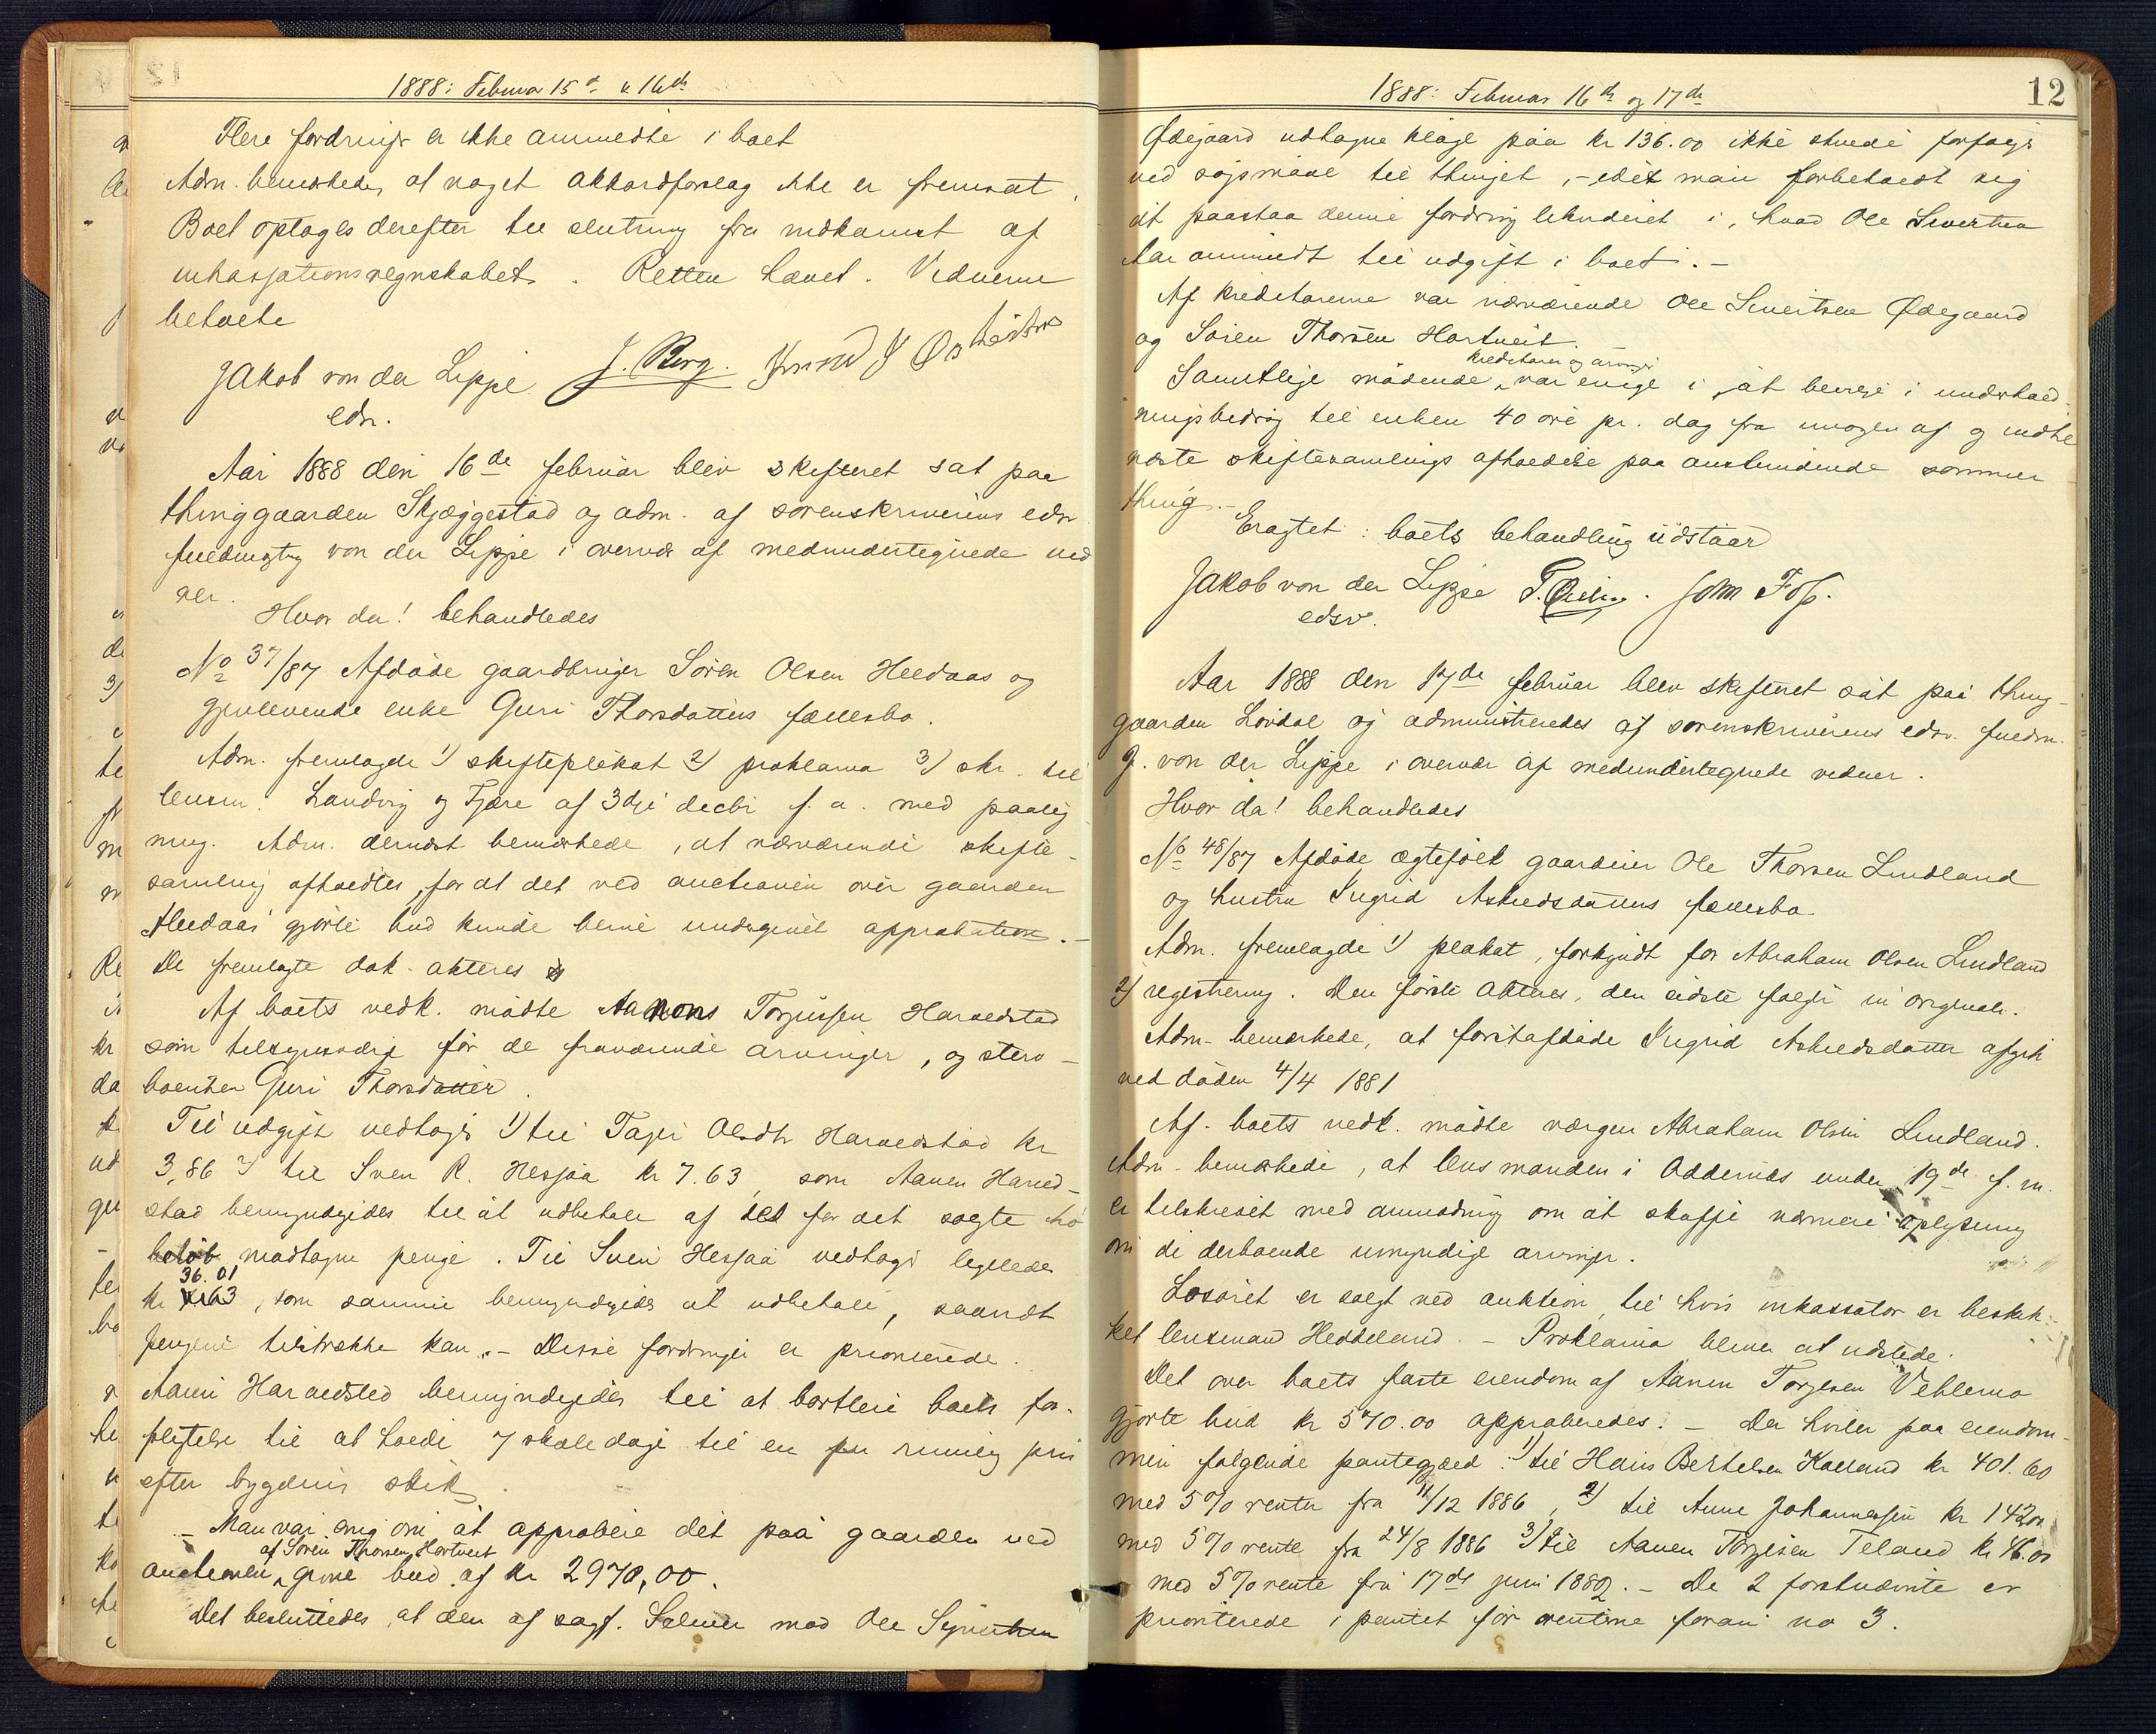 1888: Februar 15d & 16de
Flere fordringer er ikke anmeldte i boet
Adm. bemærkede, at noget akkordforslag ikke er fremsat.
Boet optages derefter til slutning fra indkomst af
inkassationsregnskabet. Retten hævet. Vidnerne
betalte
Jakob von der Lippe J. Berg.
edsv.
Aar 1888 den 16de februar blev skifteret sat paa
thinggaarden Skjæggestad og adm. af sorenskriverens edsv.
fuldmægtig von der Lippe i overvær af medundertegnede vid
ner.
Hvor da! behandledes
No 37/87 Afdöde gaardbruger Sören Olsen Heldaas og
gjenlevende enke Guri Thorsdatters fællesbo.
Adm. fremlagde 1) skifteplakat 2) proklama 3) skr. til
lensm. Landvig og Fjære af 3die decbr f. a. med paateg
ning. Adm. dernæst bemærkede, at nærværende skifte-
samling afholdtes, for at det ved auctionen over gaarden
Heldaas gjorte bud kunde blive undergivet approbation.-
De fremlagte dok. akteres
Af boets vedk. mödte Aanons Torjussen Haraldstad
som tilsynsværge for de fraværende arvinger, og sterv-
boenken Guri Thorsdatter.
Til udgift vedtoges 1) til Tager Olsdtr Haraldstad kr
3,86 2) til Sven R. Hesjaa kr 7.63, som Aanen Harald-
stad bemyndigedes til at udbetale af det for det solgte hö
belöb modtagne penge. Til Sven Hesjaa vedtoges ligeledes
36.01
kr , som samme bemyndigedes at udbetale, saavidt
pengene tilstrække kan.- Disse fordringer er prioriterede.
Aanen Haraldstad bemyndigedes til at bortleie boets for-
pligtelse til at holde 7 skoledage til en rimelig pris
efter bygdens skik.
- Man var enig om at approbere det paa gaarden ved
af Sören Thorsen Hortveit
auctionen givne bud af kr 2970,00.
Det besluttedes, at den af sagf. Salmer mod Ole Syvertsen
1888: Februar 16de og 17de
12
Ødegaard udtagne klage paa kr 136.00 ikke skulde forfølges
ved søgsmaal til thinget, - idet man forbeholdt sig
at paastaa denne fordring likvideret i, hvad Ole Sivertsen
har anmeldt til udgift i boet.-
Af kreditorerne var nærværende Ole Sivertsen Ødegaard
og Sören Thorsen Hortveit.
kreditorer og arvinger
Samtlige mödende var enige i at bevilge i underhold-
ningsbidrag til enken 40 öre pr. dag fra imorgen af og indtil
næste skiftesamlings afholdelse paa anstundende sommer
thing.-
Eragtet: boets behandling udstaar
Jakob von der Lippe John Foss.
edsv.
Aar 1888 den 17de februar blev skifteret sat paa thing-
gaarden Lovdal og administreredes af sorenskriverens edsv. fuldm.
J. von der Lippe i overvær af medundertegnede vidner.
Hvor da! behandledes
No 48/87 Afdöde ægtefolk gaardeier Ole Thorsen Lindland
og hustru Ingrid Askildsdatters fællesbo.
Adm. fremlagde 1) plakat, forkyndt for Abraham Olsen Lindland
2) registrering. Den förste akteres, den sidste fölger in originali.
Adm. bemærkede, at förstafdöde Ingrid Askildsdatter afgik
ved döden 4/4 1881
Af boets vedk. mödte værgen Abraham Olsen Lindland.
Adm. bemærkede, at lensmanden i Oddernæs under 19de f. m.
er tilskrevet med anmodning om at skaffe nærmere oplysning
om de derboende umyndige arvinger.
Lösöret er solgt ved auktion, til hvis inkassator er beskik-
ket lensmand Heddeland. - Proklama bliver at udstede.
Det over boets faste eiendom af Aanen Torjesen Vehlemo
gjorte bud kr 570.00 approberedes. - Der hviler paa eiendom-
men fölgende pantegjæld: 1) til Hans Bertelsen Kalland kr 401.60
med 5% renter fra 11/12 1886, 2) til Anne Johannessen kr 142.00
med 5% rente fra 24/8 1886 3) til Aanen Torjesen Teland kr 46.00
med 5% rente fra 17de juni 1882. - De 2 förstnævnte er
prioriterede i pantet för renterne foran no 3.